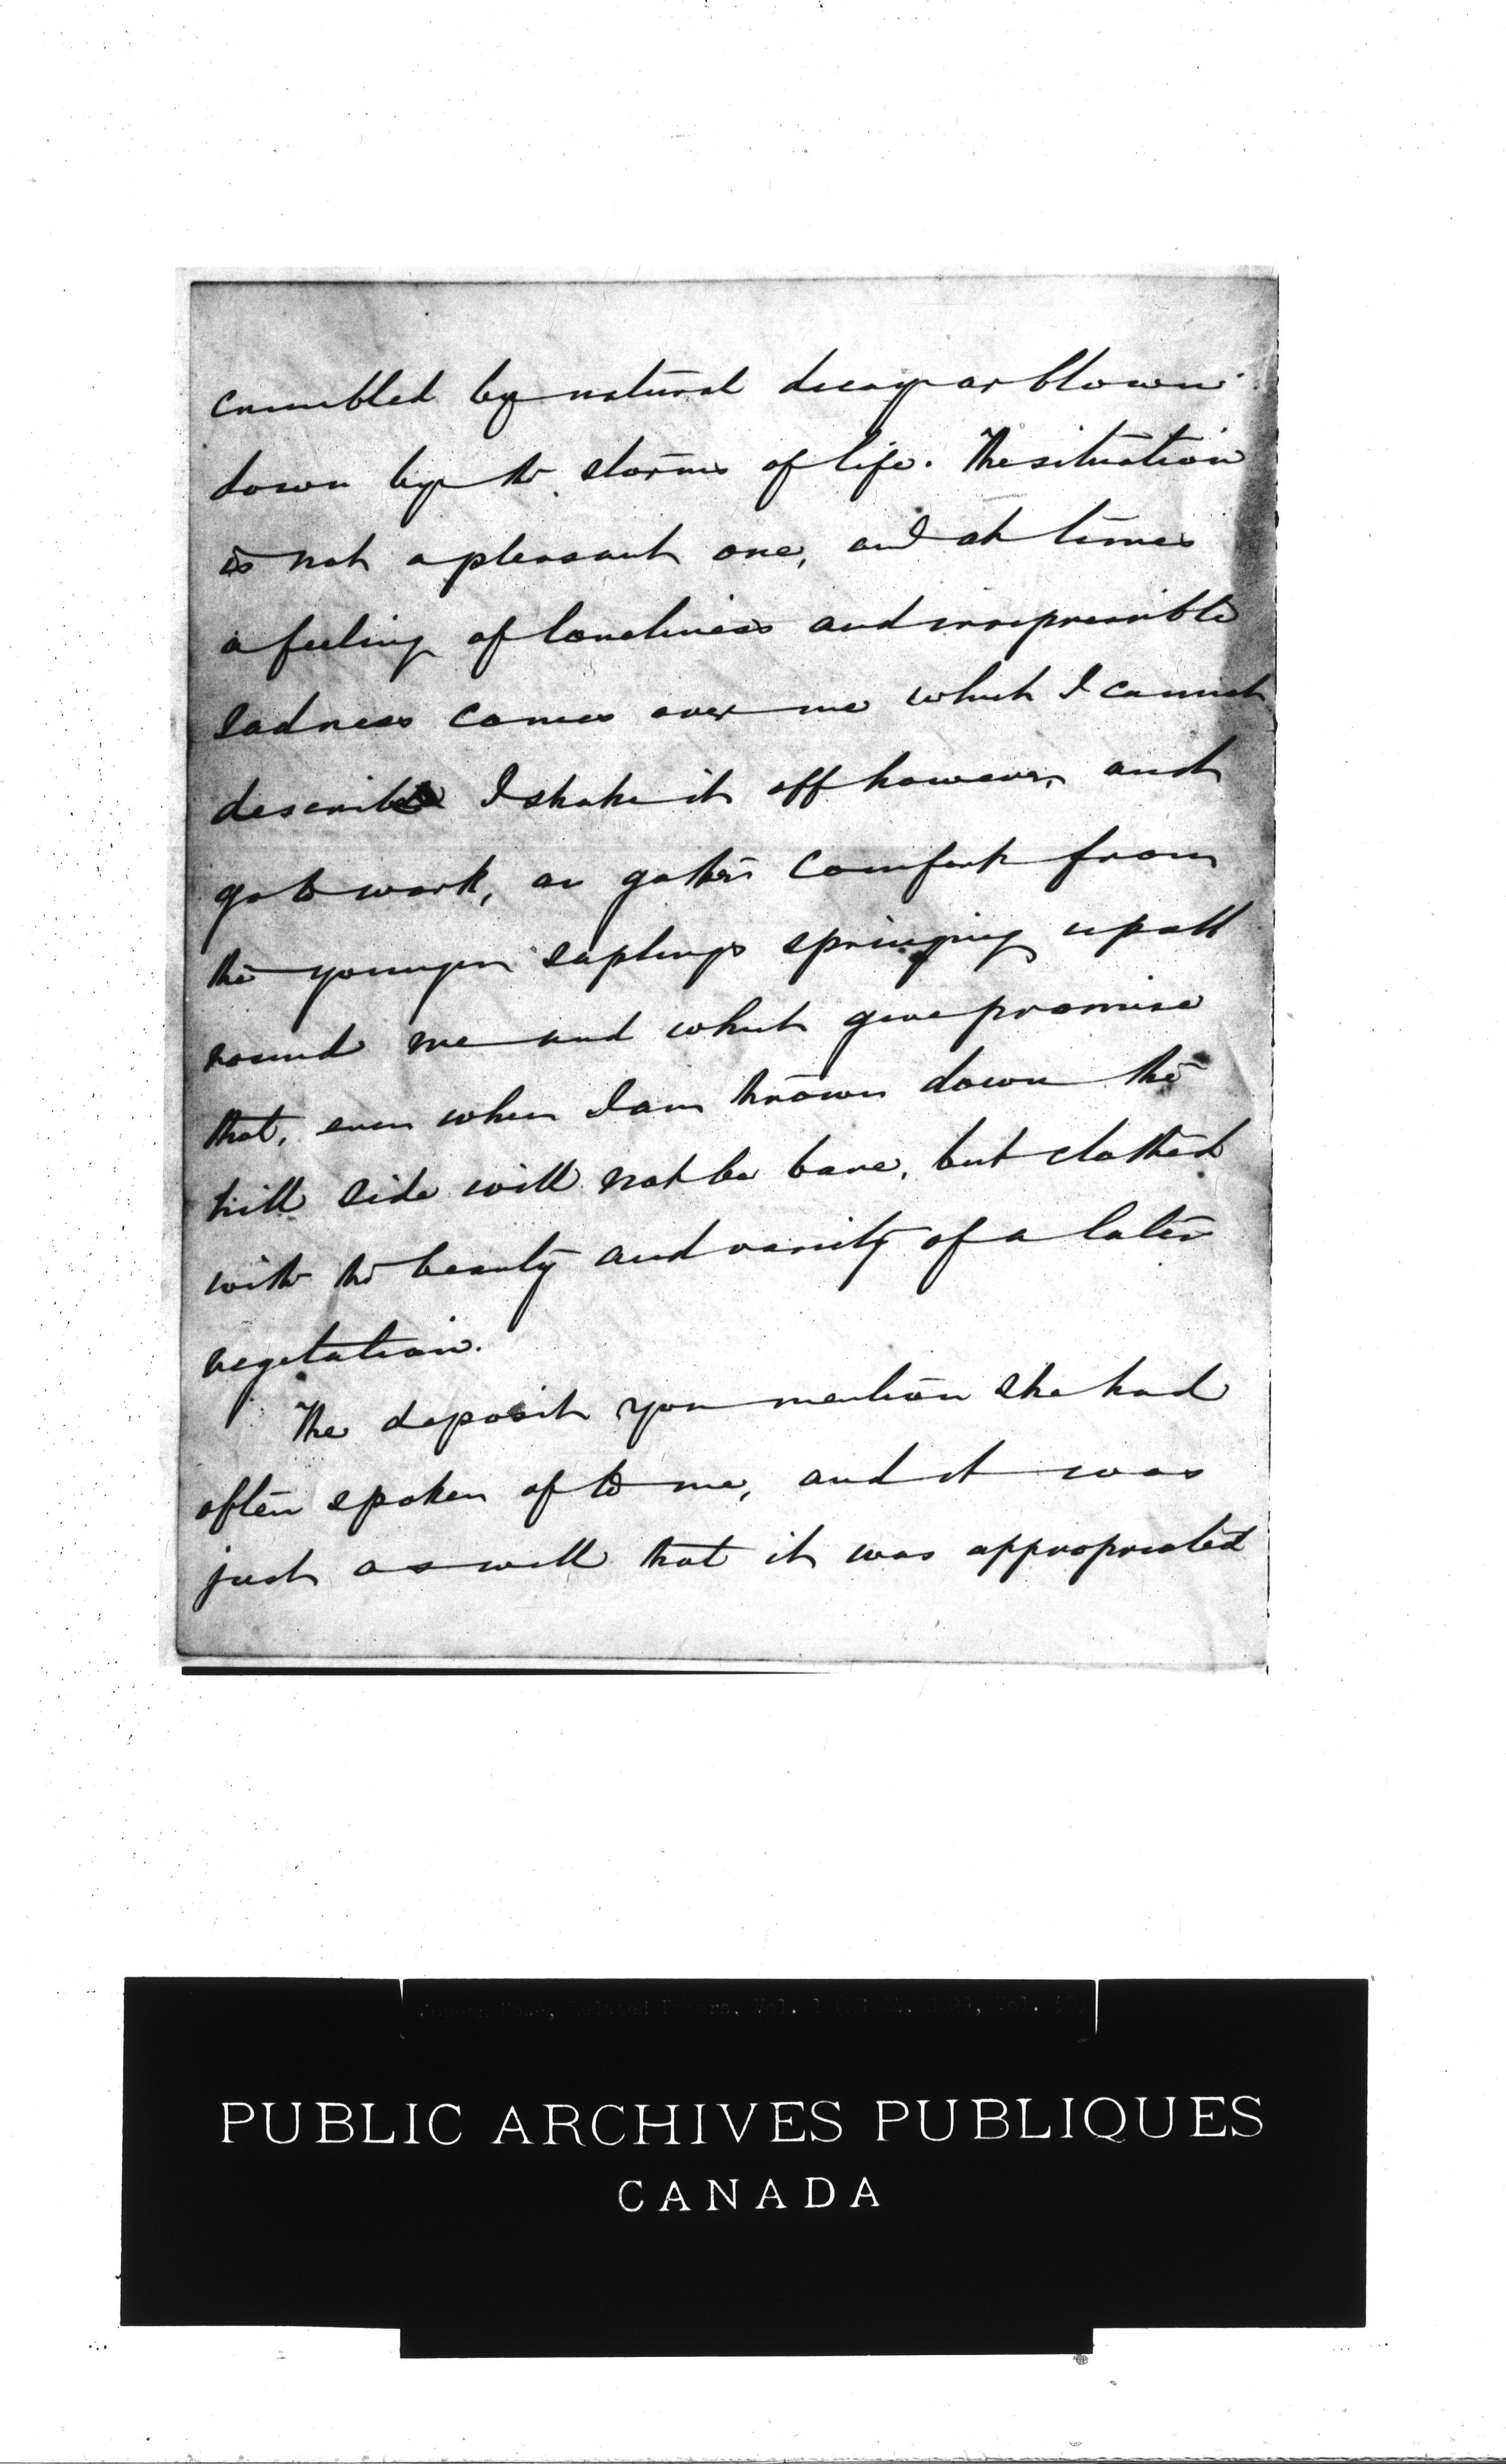 crumbled by natural decay or blown
down by the storms of life. The situation
is not a pleasant one, and at times
a feeling of loneliness and irrepressible
sadness comes over me which I cannot
describe I shake it off however, and
go to work, or gather comfort from
the younger saplings springing up all
round me and which give promise
that, even when I am thrown down the
hill side will not be bare, but clothed
with the beauty and variety of a later
vegetation.
The deposit you mention she had
often spoken of to me, and it was
just as well that it was appropriated
Joseph Howe, Related Papers, Vol. 1
PUBLIC ARCHIVES PUBLIQUES
CANADA